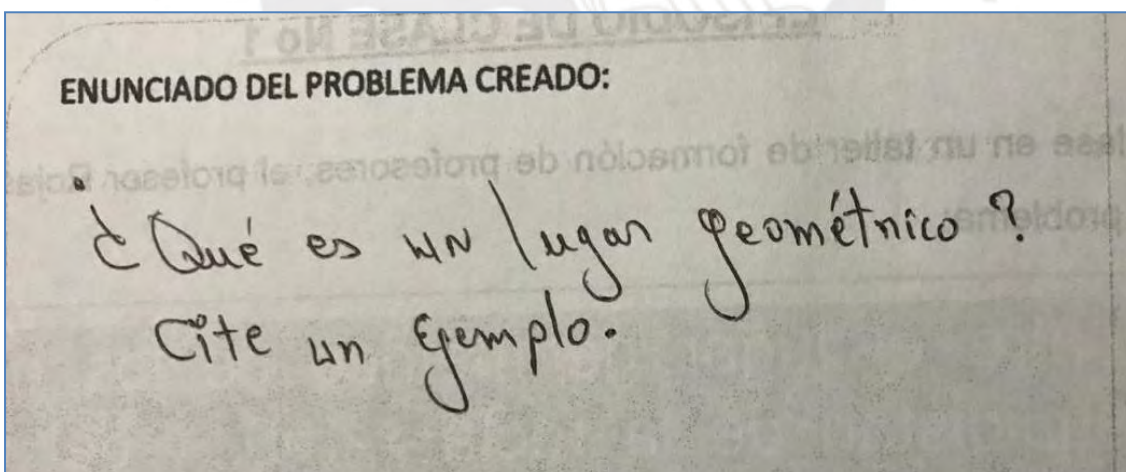 ENUNCIADO DEL PROBLEMA CREADO:
¿Qué es un lugar geométrico?
Cite un Ejemplo.